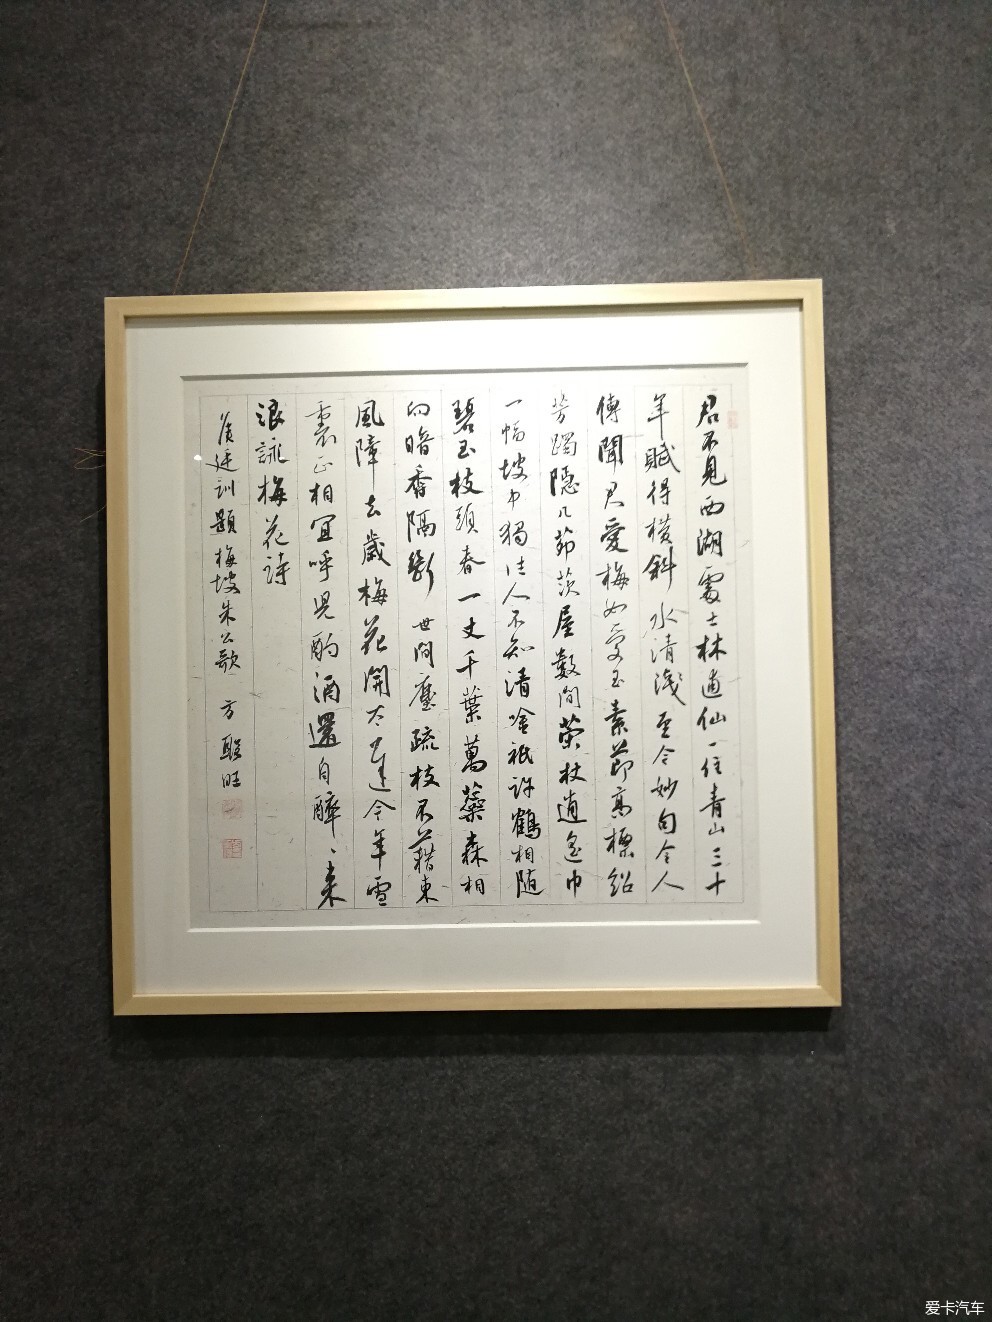 君不見西湖處士林逋仙一住青山三十
年賦得橫斜水清淺至今妙句令人
傳聞君愛梅如愛玉素節高標紹
芳躅隱几茆茨屋數間策杖逍遙巾
一幅坡中獨往人不知清吟祇許鶴相隨
碧玉枝頭春一丈千葉萬蘂森相
向暗香隔斷世間塵疏枝不藉東
風障去歲梅花開太遲今年雪
裏正相宜呼兒酌酒還自醉、來
浪詠梅花詩
廷訓題梅坡朱公歌 方聪旺
爱卡汽车